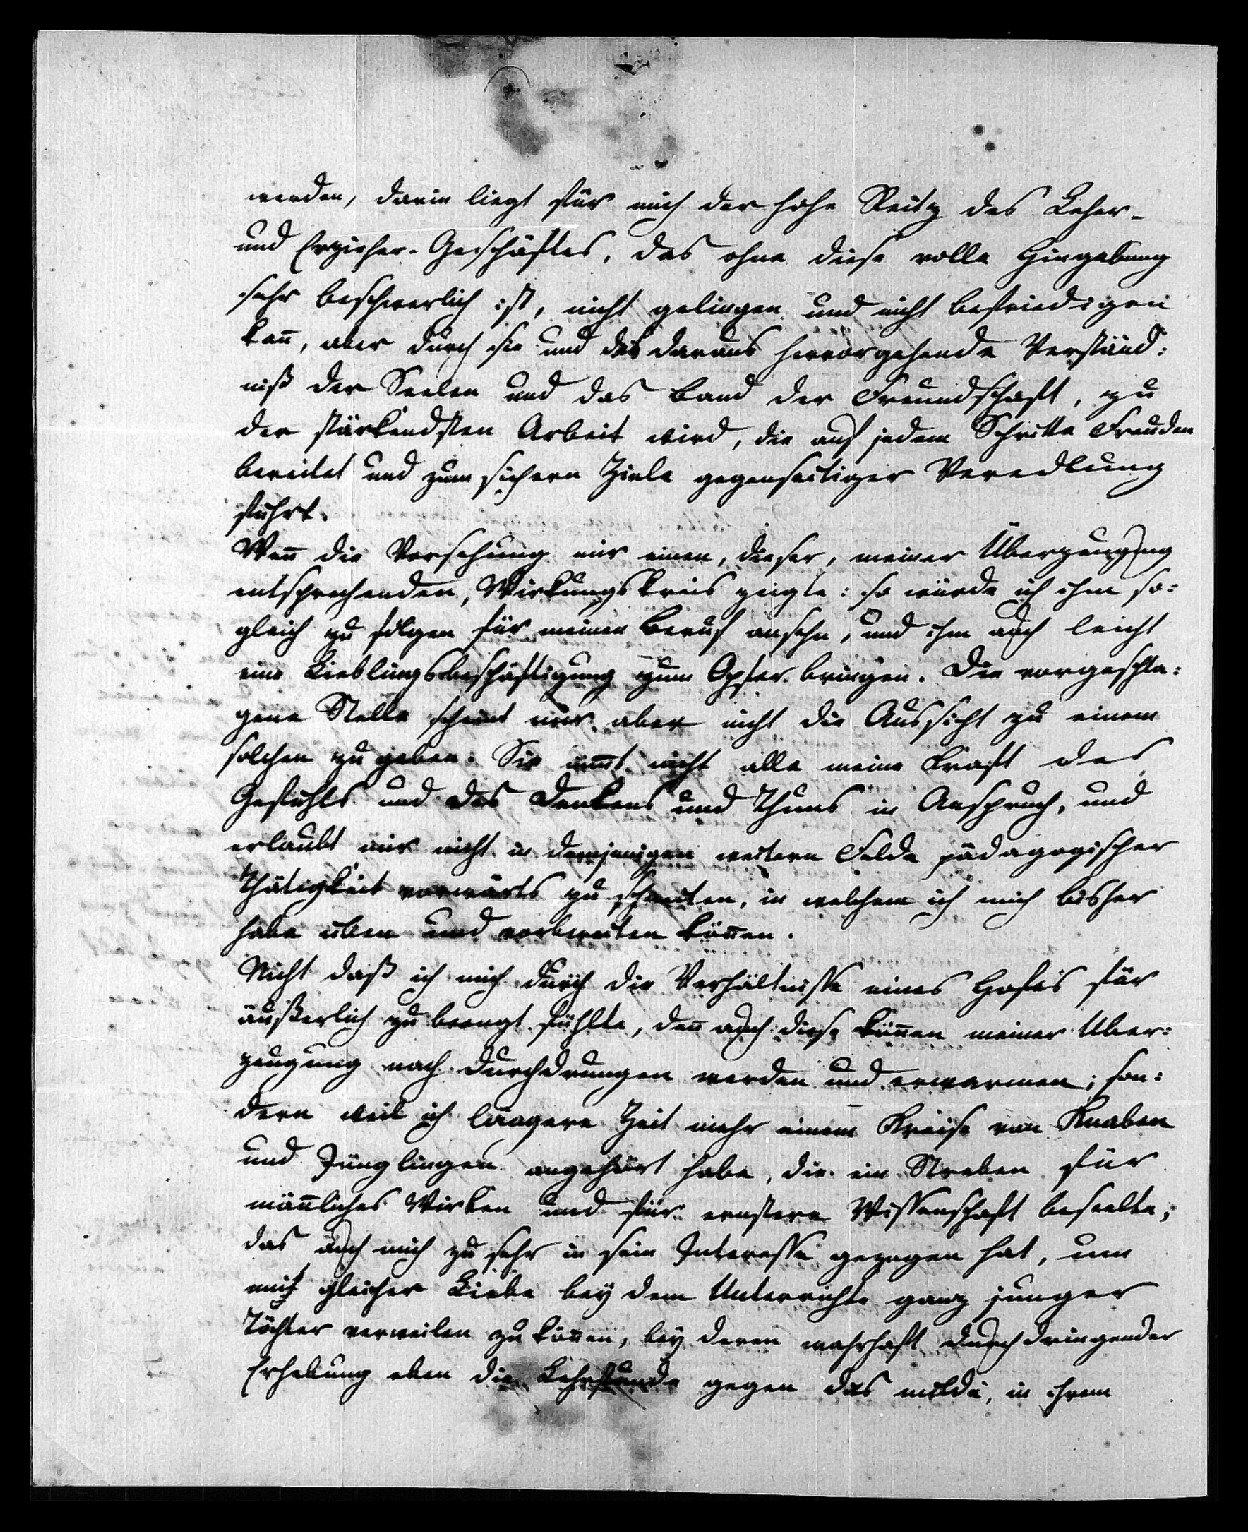 werden, darin liegt für mich der hohe Reitz des Lehrer-
und Erzieher-Geschäftes, das ohne diese volle Hingebung
sehr beschwerlich ist, nicht gelingen und nicht befriedigen
kañ, aber durch sie und das daraus hervorgehende Verständ:
niß der Seelen und das Band der Freundschaft, zu
der stärkendsten Arbeit wird, die auf jedem Schritte Freuden
bereitet und zum sichern Ziele gegenseitiger Veredlung
führt.
Weñ die Vorsehung mir einen, dieser, meiner Überzeugung
entsprechenden, Wirkungskreis zeigte: so würde ich ihm so:
gleich zu folgen für meinen Beruf ansehn, und ihm auch leicht
eine Lieblingsbeschäftigung zum Opfer bringen. Die vorgeschla:
gene Stelle scheint mir aber nicht die Aussicht zu einem
solchen zu geben. Sie nim̃t nicht alle meine Kraft des
Gefühls und des Denkens und Thuns in Anspruch, und
erlaubt mir nicht in demjenigen weitern Felde pädagogischer
Thätigkeit vorwärts zu schreiten, in welchem ich mich bisher
habe üben und vorbereiten köñen.
Nicht daß ich mich durch die Verhältnisse eines Hofes für
äußerlich zu beengt fühlte, deñ auch diese köñen meiner Über:
zeugung nach durchdrungen werden und erwarmen; son:
dern weil ich längere Zeit mehr einem Kreise von Knaben
und Jünglingen angehört habe, die ein Streben für
mäñliches Wirken und für ernstere Wissenschaft beseelte;
das auch mich zu sehr in sein Interesse gezogen hat, um
mit gleicher Liebe bey dem Unterrichte ganz junger
Töchter verweilen zu köñen, bey deren wahrhaft durchdringender
Erhebung eben die Lehrstunde gegen das milde, in ihrem